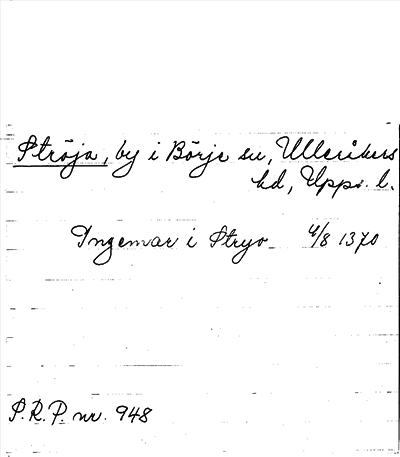 Ströja, by i Börje sn, Ulleråkers
hd, Upps. l.
Ingemar i Stryo 4/8 1370
S.R.P. nr. 948